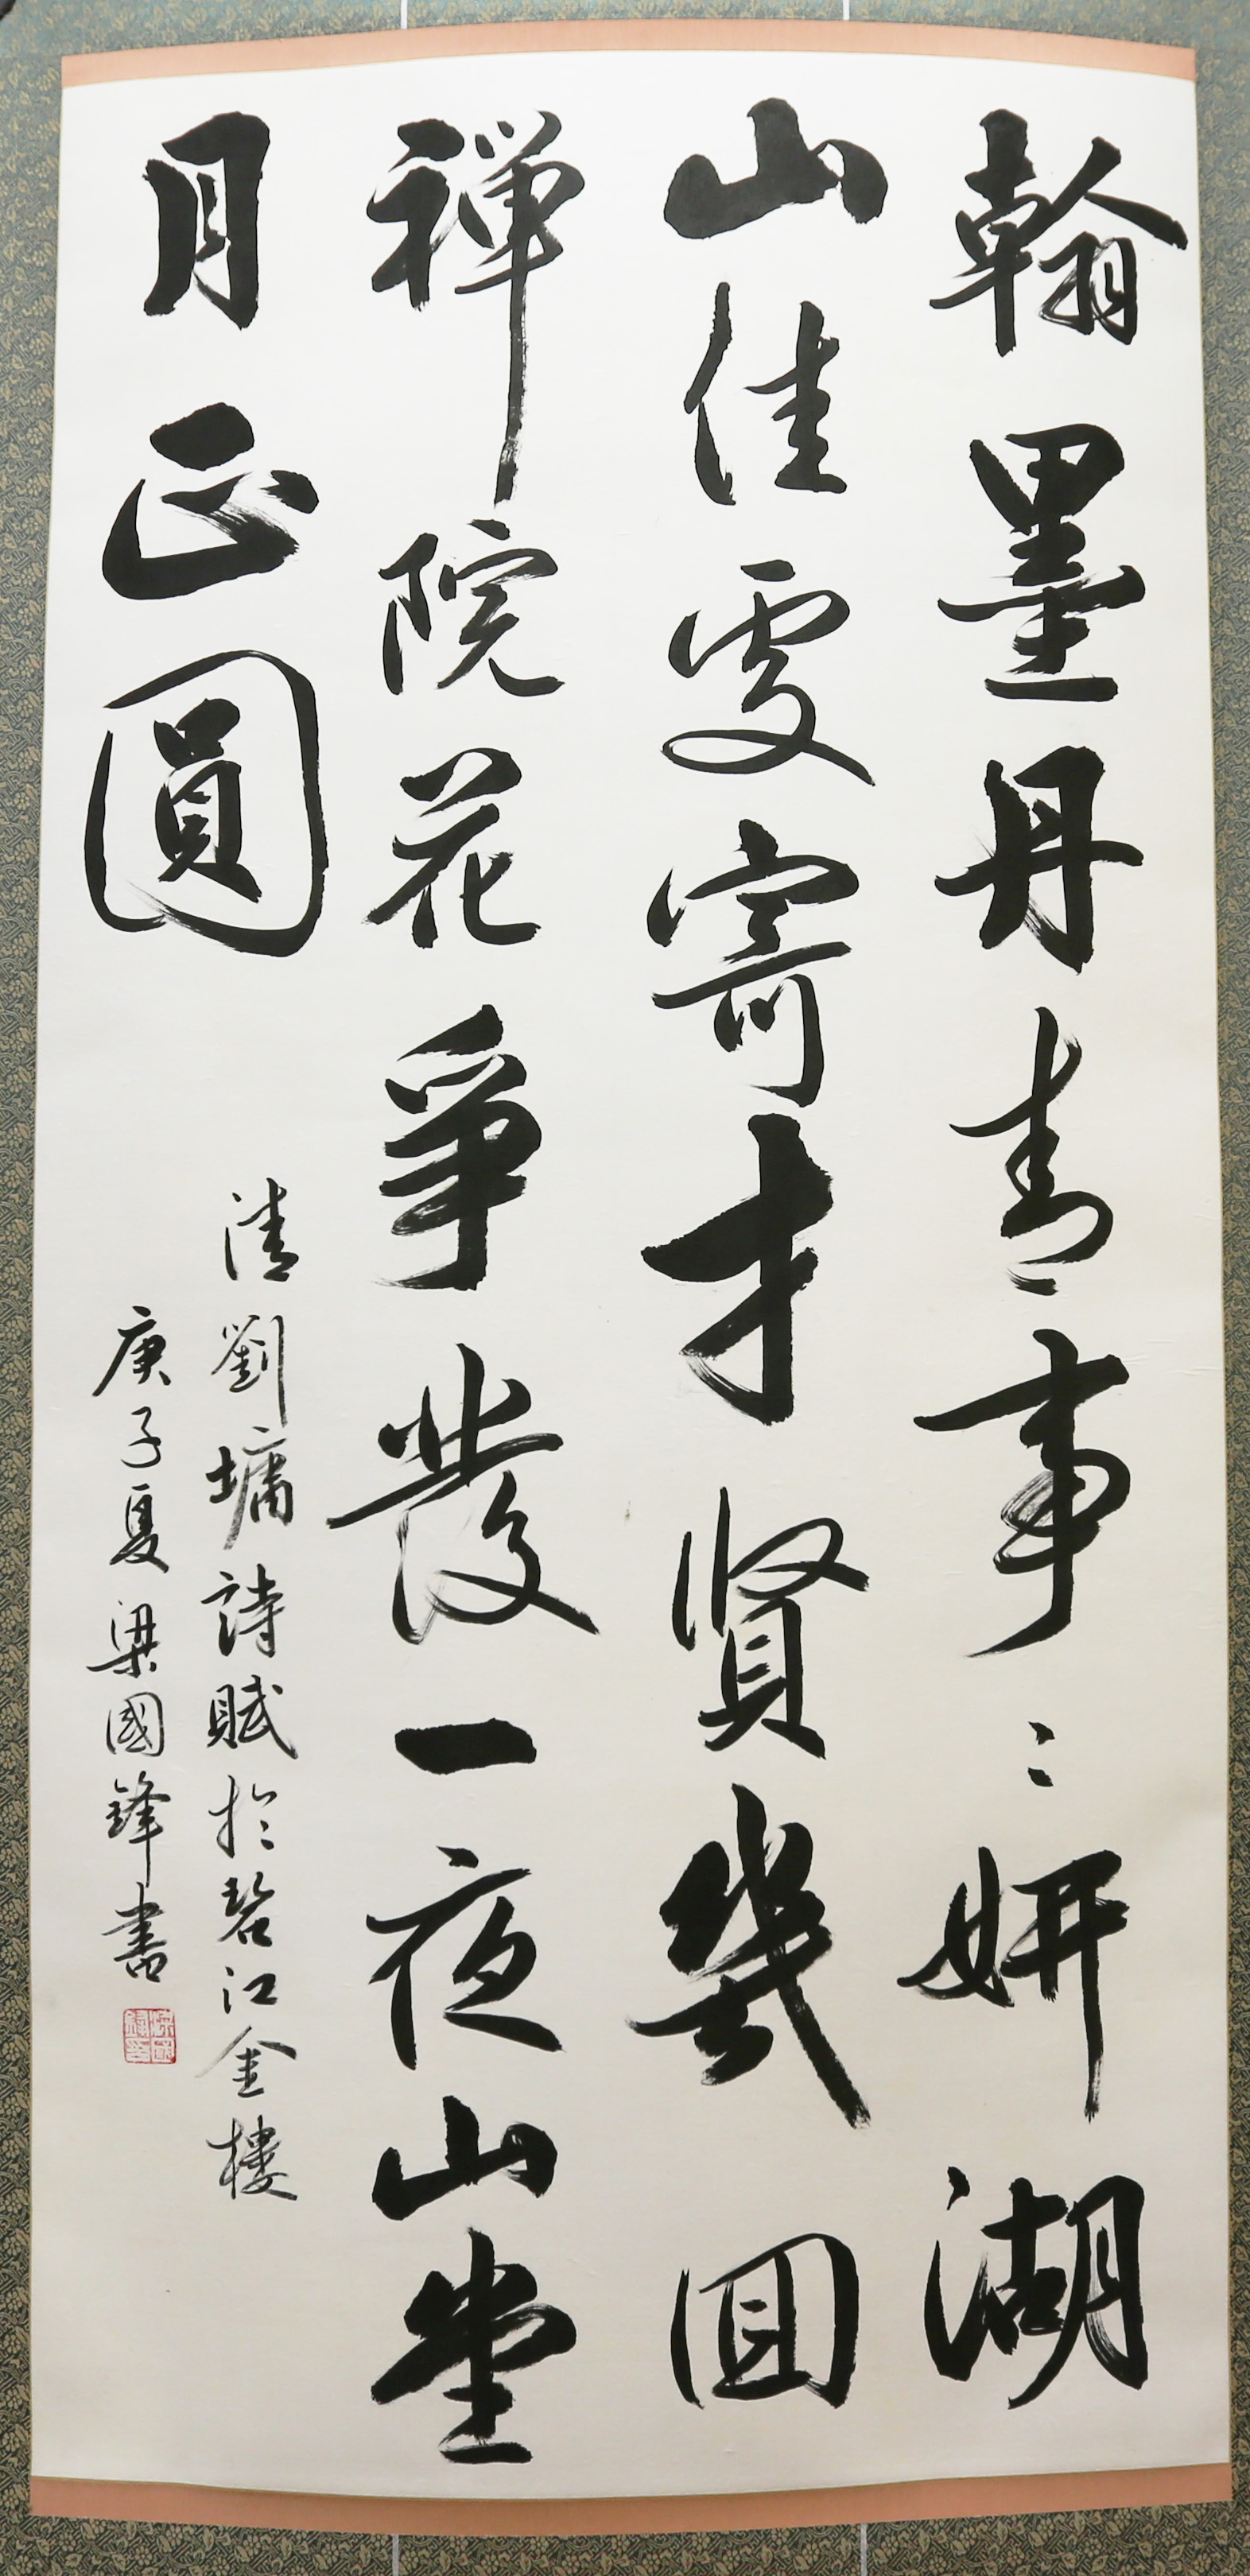 翰墨丹青事〻妍湖
山佳處寄才賢幾回
禪院花爭發一夜山堂
月正圓
清劉墉詩賦於碧江金樓
庚子夏梁國鋒書